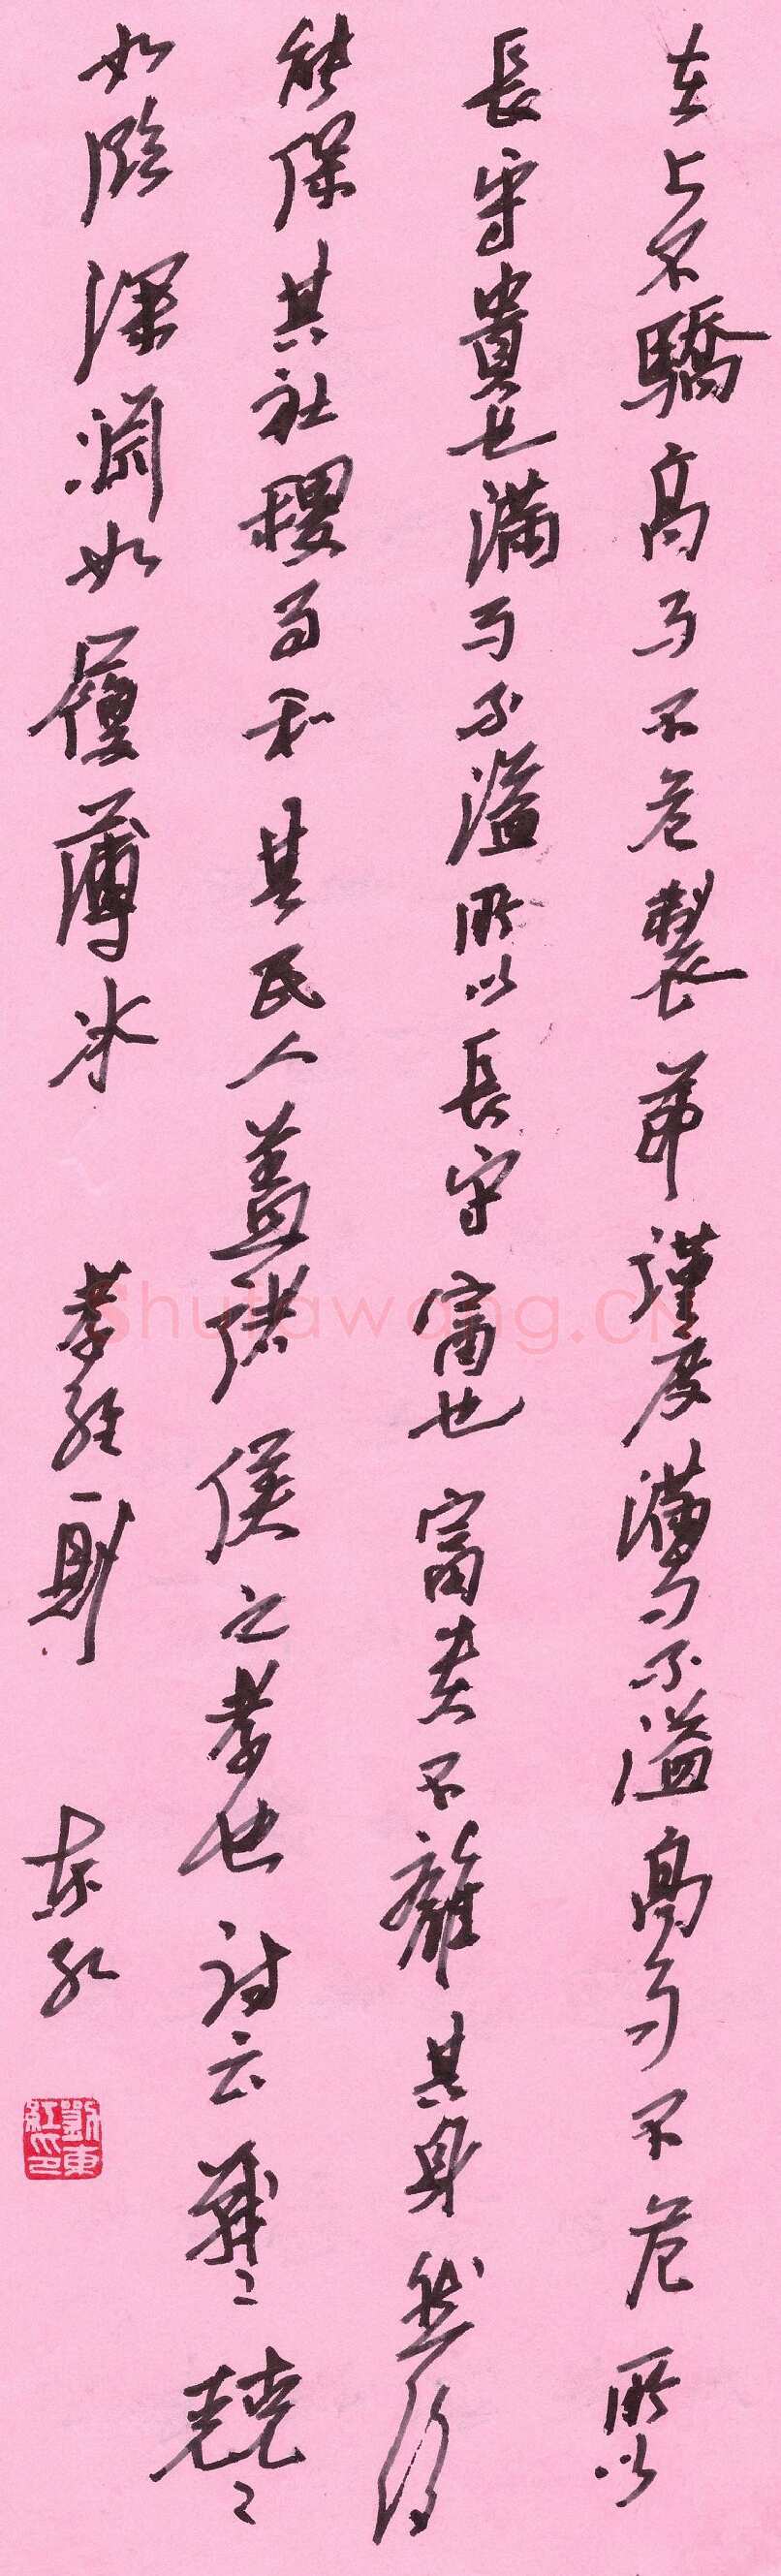 在上不驕高而不危製节謹度滿而不溢高而不危所以
長守貴也滿而不溢所以長守富也富贵不離其身然后
能保其社稷而和其民人蓋諸侯之孝也詩云戰々兢々
如臨深淵如履薄冰
孝經一則
东红
劉東紅印
Shufawang.CN